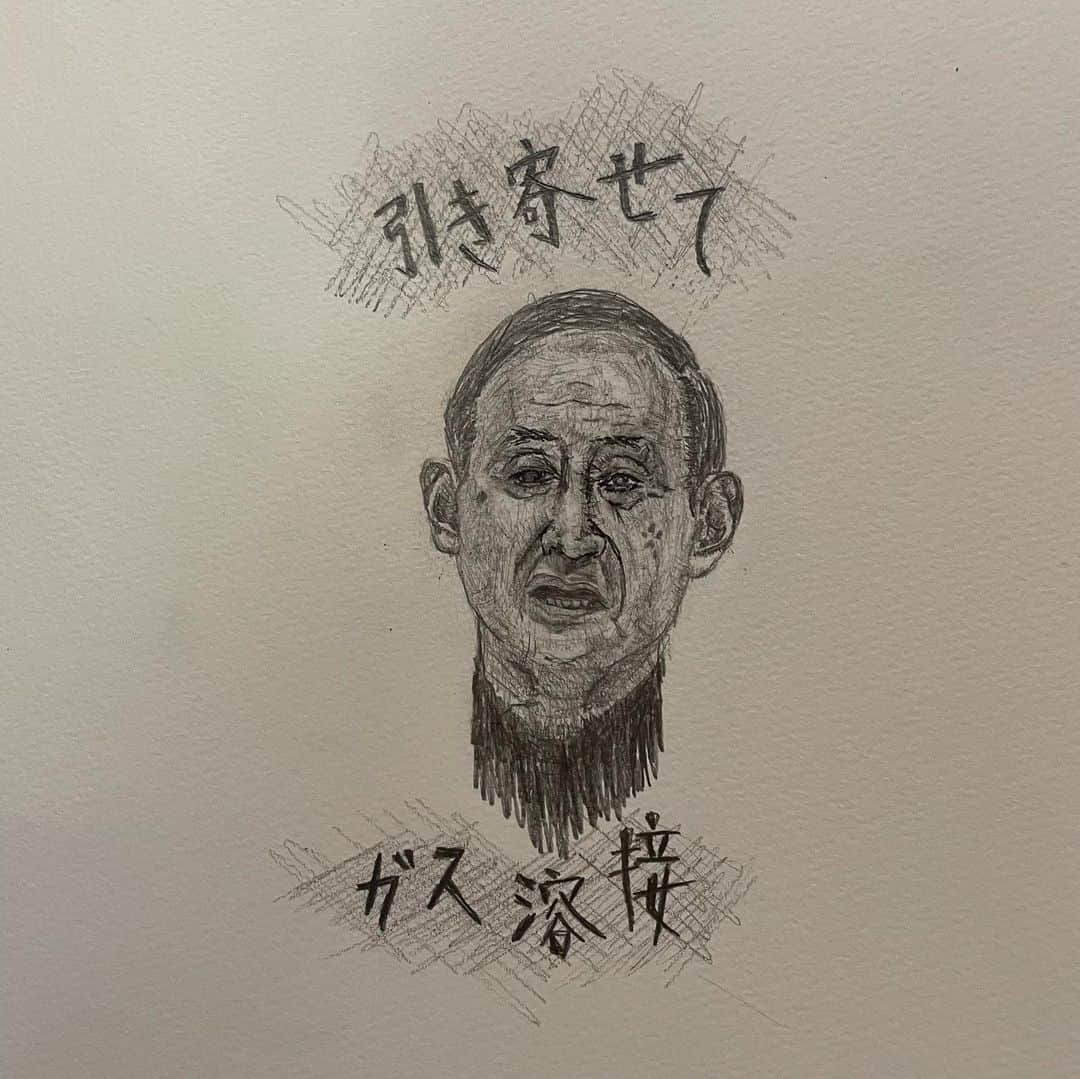 引き寄せて
ガス溶接